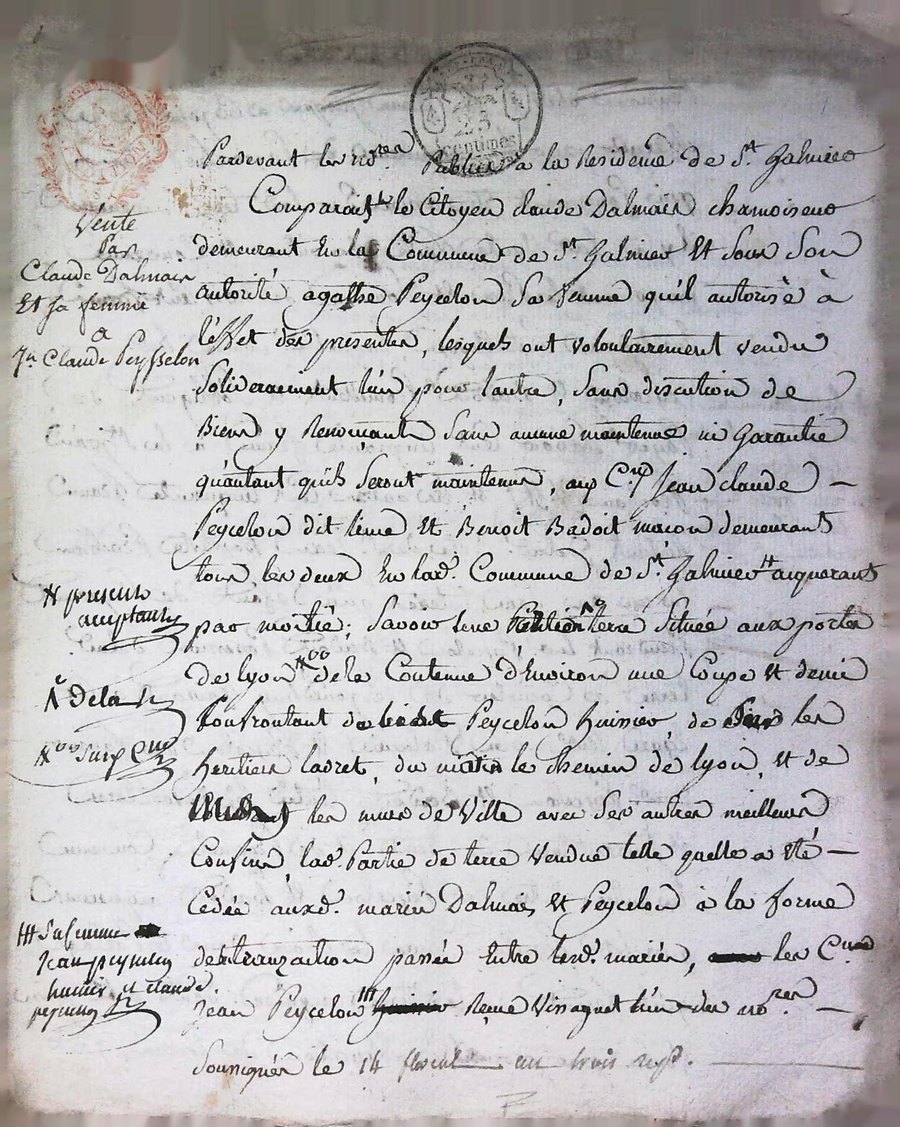 25
centimes
Pardevant les no.res Publics a la Residence de St. Galmier
Comparant le Citoyen claude Dalmais chamoiseur
demeurant En la Commune de St. Galmier Et Sous Son
autorité agathe Peycelon Sa femme qu'il autorise à
l'effet des presentes, lesquels ont volontairement vendu
Soliderement l'un pour lautre, Sans discution de
Biens y Renonçant Sans aucune maintenue ni Garantie
qu'autant qu'ils Seront maintenus, aux C.ns Jean claude —
Peycelon dit Et Benoit Badoit maçon demeurant
tous les deux En lad. Commune de St. Galmier # aiquerant
par moitié; Savoir une terre Située aux portes
de lyon de la Contenue d'Environ une Coupe Et demie
Confrontant de Peycelon huissier, de les
heritiers ladret, du matin le chemin de lyon, Et de
les murs de Ville avec Ses autres meilleurs
Confins lad. Partie de terre Vendue telle quelle a Eté —
Cedée auxd. mariés Dalmais Et Peycelon à la forme
de transaction passée Entre lesd. mariés, les C.
Jean Peycelon Reçue Vinagnet l'un des no.res —
Sousignés le 14 floreal an trois
Vente
Par
Claude Dalmais
Et sa femme
a
Jn. Claude Peysselon
# presents
acceptants
de la
## Sa femme
Jean peysselon
huissier et claude
peysselon